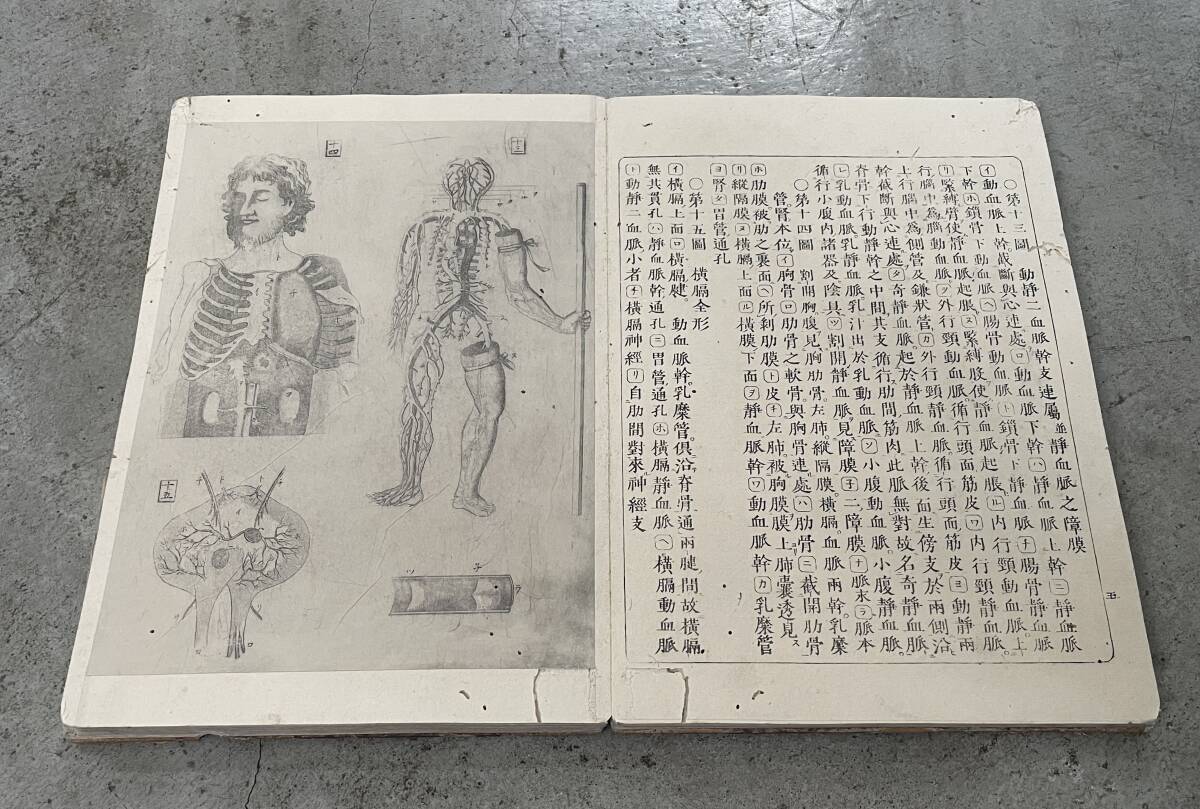 十四
十三
十五
○第十三圖 動靜二血脈幹支連屬並靜血脈之障膜
㋑動血脈上幹截斷與心連處㋺動血脈下幹㋩靜血脈上幹㋥靜血脈
下幹㋭鎖骨下動血脈㋬腸骨動血脈㋣鎖骨下靜血脈㋠腸骨靜血脈
㋷緊縛臂使靜血脈起脹㋦緊縛股使靜血脈起脹㋸內行頸動血脈上
行腦中爲腦動血脈㋾外行頸動血脈。循行頭面筋皮㋻內行頸靜血脈
上行腦中爲側管及鎌狀管㋕外行頸靜血脈循行頭面筋皮㋵動靜兩
幹截斷與心連處㋟奇靜血脈起於靜血脈上幹後面生傍支於兩側沿
脊骨下行動靜幹之中間其支循行肋間筋肉此脈無對故名奇靜血脈。
㋹乳動血脈乳靜血脈乳汁出於乳動血脈㋞小腹動血脈。小腹靜血脈。
循行小腹內諸器及陰具㋡割開靜血脈。見障膜㋧二障膜㋤脈末㋶脈本
○第十四圖 割開胸腹見胸肋骨。左肺。縱隔膜。橫膈血脈兩幹。乳糜
管腎本位㋑胸骨㋺肋骨之軟骨。與胸骨連處㋩肋骨㋥截開肋骨
㋭肋膜被肋之裏面㋬所剝肋膜㋣皮㋠左肺。被胸膜上肺囊透見
㋷縱隔膜㋦橫膈上面㋸橫膜下面㋾靜血脈幹㋻動血脈幹㋕乳糜管
㋵腎㋟胃管通孔
○第十五圖 橫膈全形
㋑橫膈上面㋺橫膈腱 動血脈幹。乳糜管。俱沿脊骨通兩腱間故橫膈
無其貫孔㋩靜血脈幹通孔㋥胃管通孔㋭橫膈靜血脈㋬橫膈動血脈
㋣動靜二血脈小者㋠橫膈神經㋷自肋間對來神經支
五